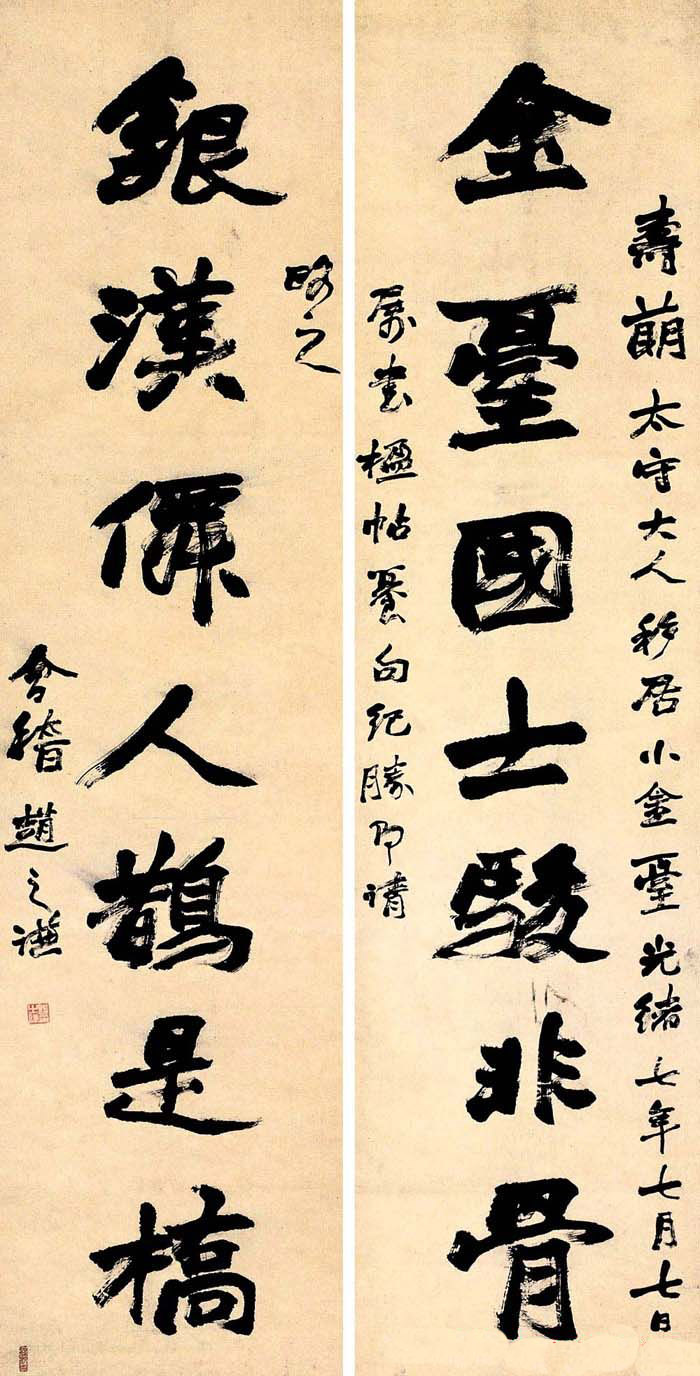 壽萠太守大人移居小金臺光緒七年七月七日
金臺國士駿非骨
屬書楹帖句紀勝即請
之
銀漢僊人鵲是橋
會稽趙之謙